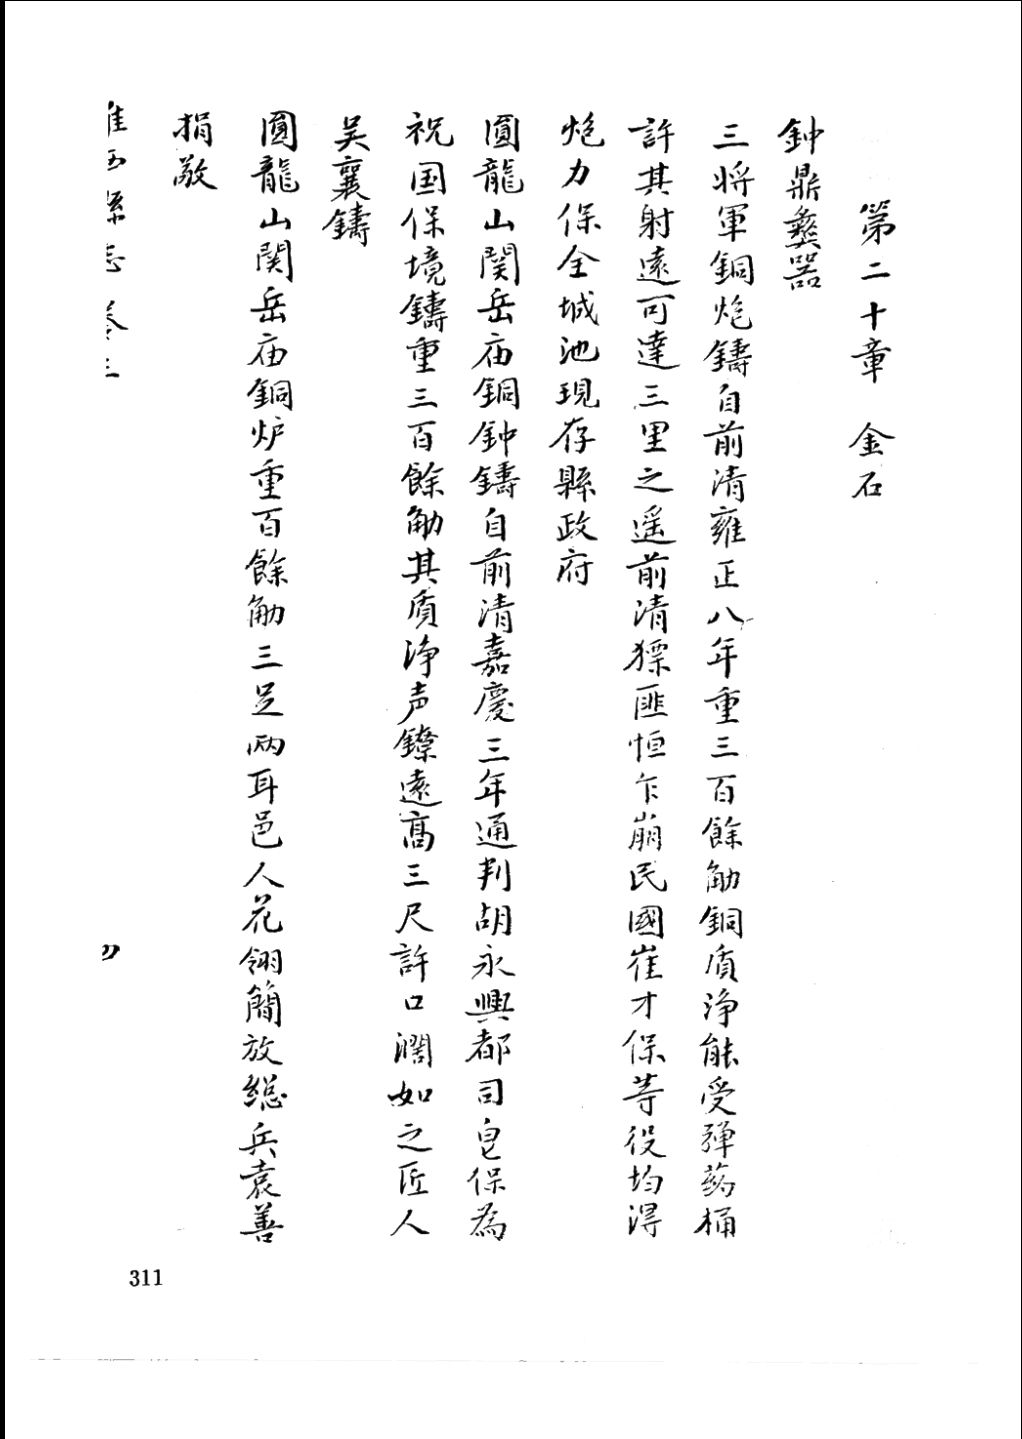 第二十章　金石
鈡鼎彝器
三将軍銅炮鑄自前清雍正八年重三百餘觔銅质淨能受弹药桶
許其射遠可達三里之遥前清猓匪恒乍崩民國崔才保等役均淂
炮力保全城池現存縣政府
圓龍山関岳庙銅鈡鑄自前清嘉慶三年通判胡永興都司皂保為
祝国保境鑄重三百餘觔其质淨声鐐遠高三尺許口濶如之匠人
吴襄鑄
圓龍山関岳庙銅炉重百餘觔三足两耳邑人花翎簡放総兵袁善
捐敬
維西縣志　卷三
311